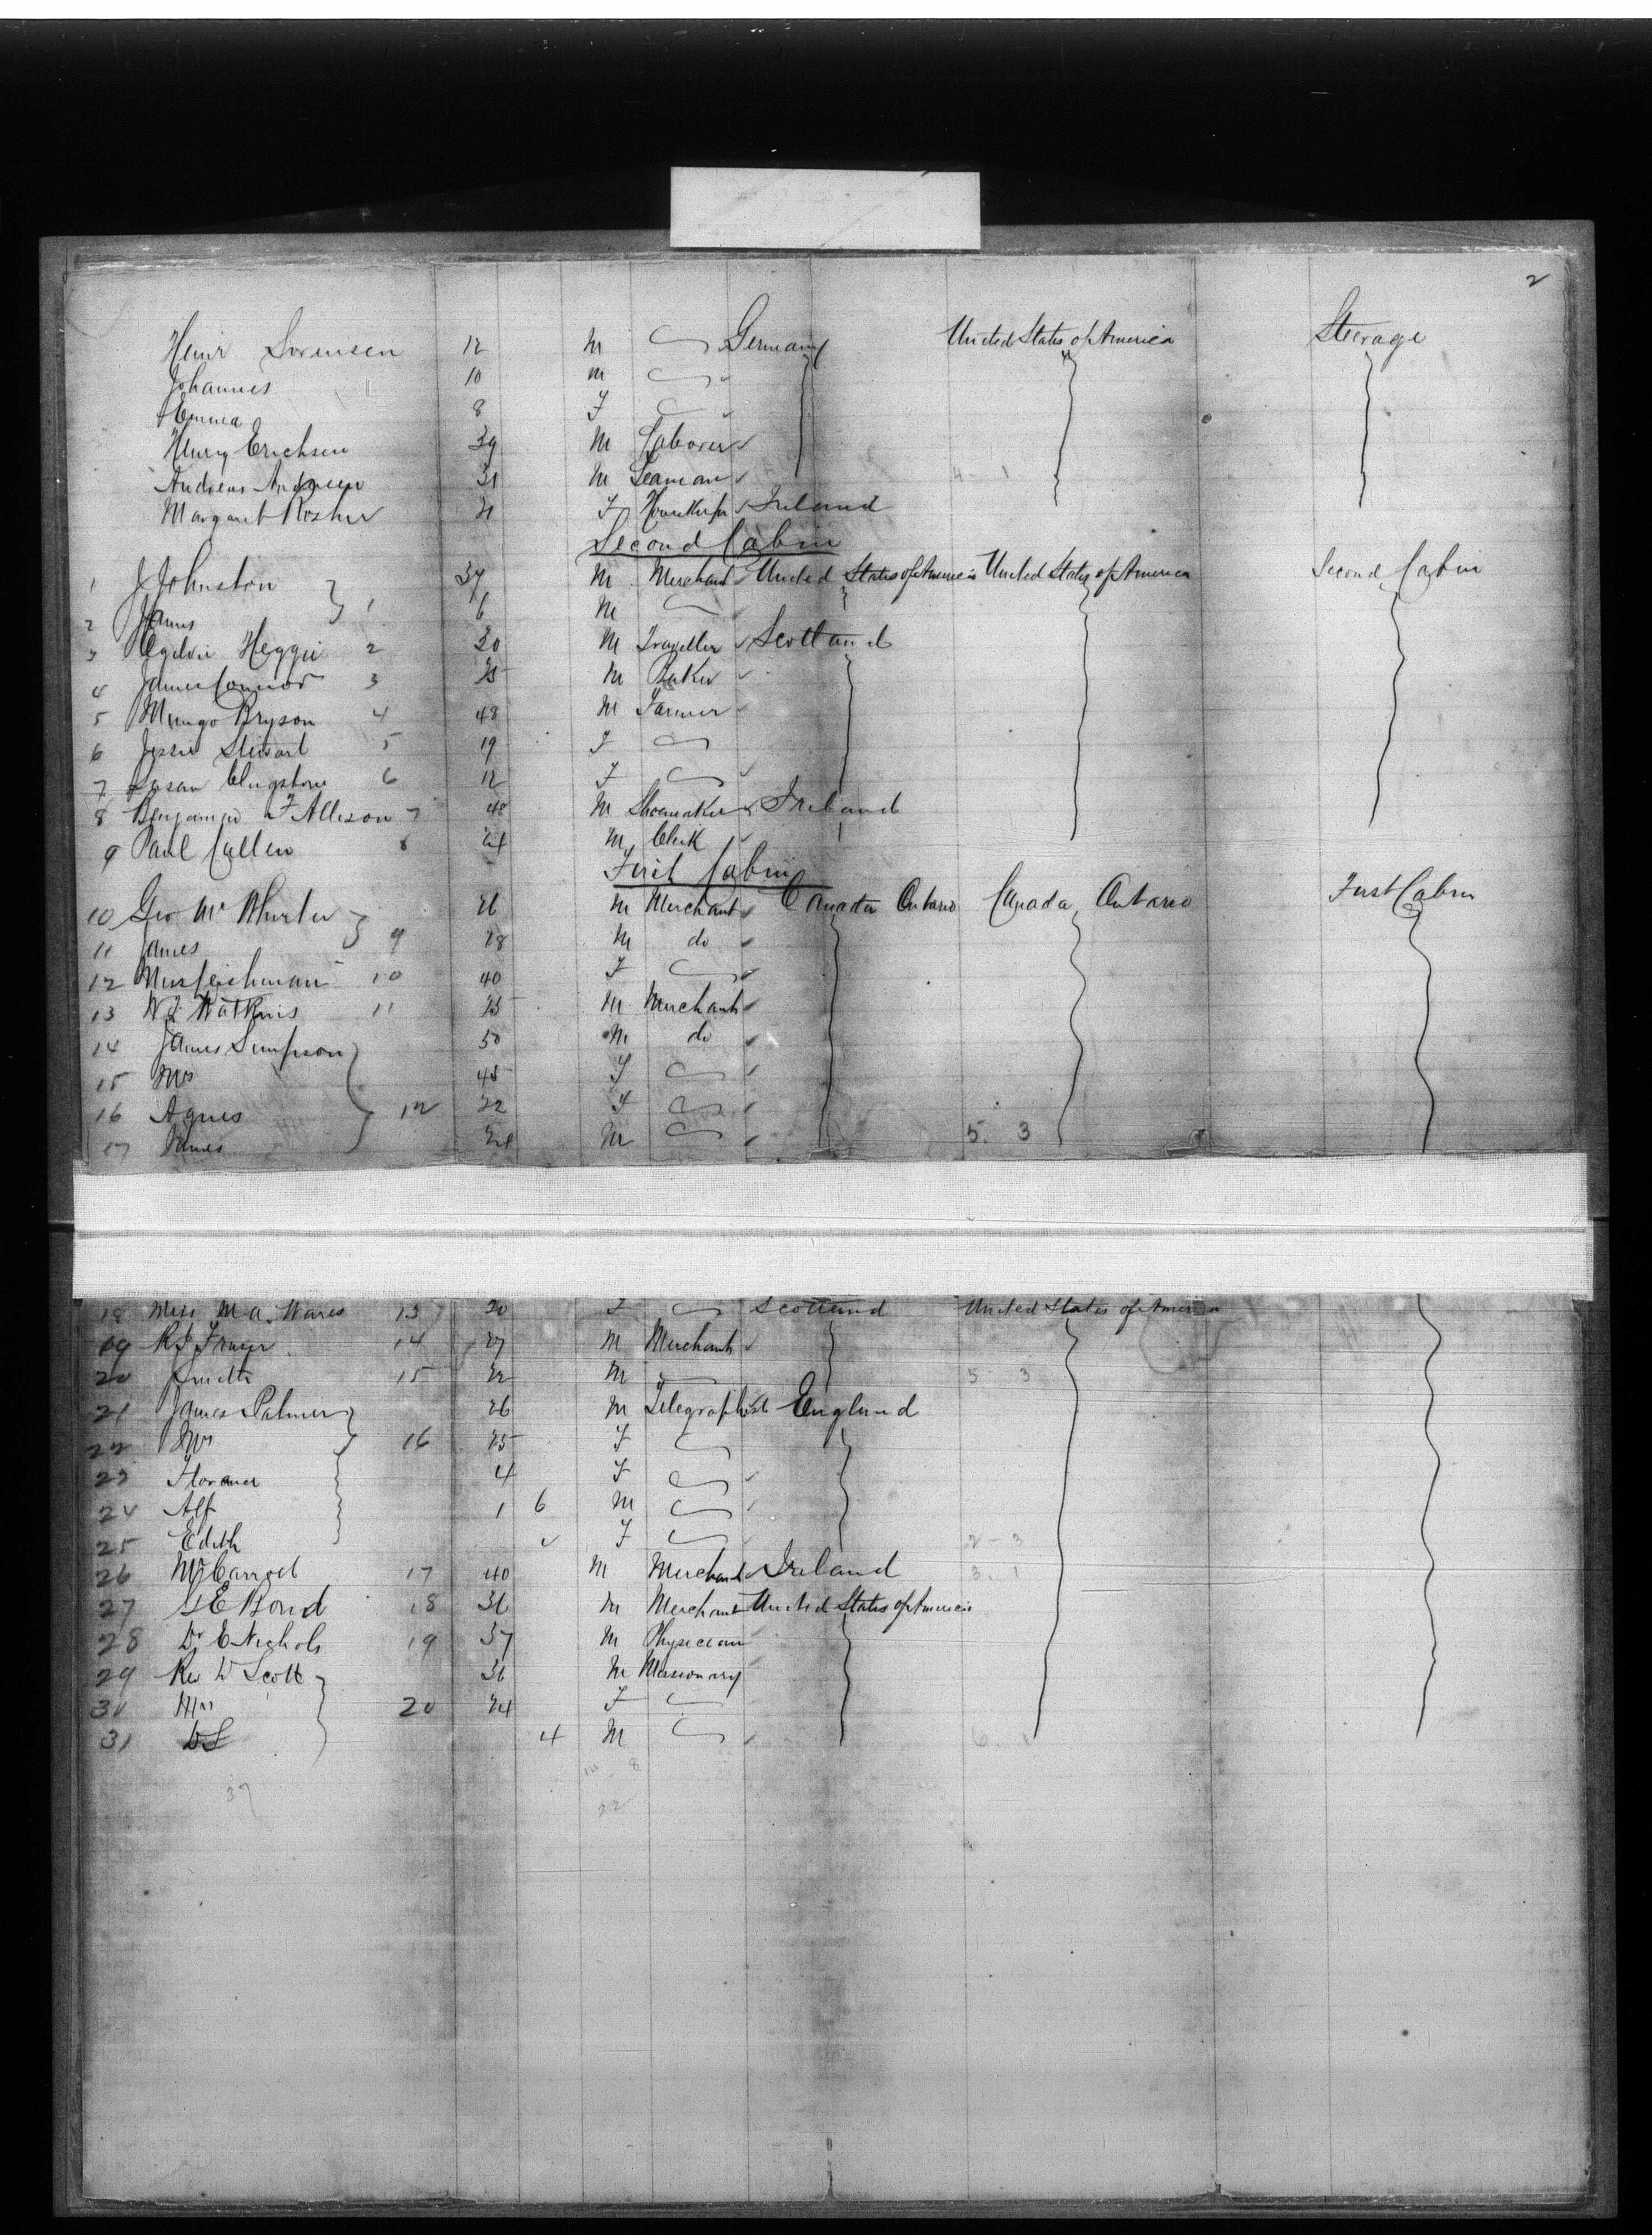 2
Heinr Sorensen 12 M Germany United States of America Steerage
Johannes 10 M
Emma 8 F
Henry Erichsen 39 M Laborer
Andreas 31 M Seaman 4 - 1
Margaret F Ireland
Second Cabin
1 J Johnston 37 M Merchant United States of America United States of America Second Cabin
2 James 1 6 M
3 Ogilvie Heggie 2 30 M Traveller Scotland
4 James Connor 3 25 M Baker
5 Mungo Bryson 4 48 M Farmer
6 Jessie Stewart 5 19 F
7 Susan Clugstone 6 12 F
8 Benjamin F Allison 7 48 M Shoemaker Ireland
9 Paul Cullen 8 24 M Clerk
First Cabin
10 Geo Mc Whirter 26 M Merchant Canada Ontario Canada Ontario First Cabin
11 James 9 28 M do
12 Mrs Leishman 10 40 F
13 Watkins 11 25 M Merchant
14 James Simpson 50 M do
15 Mrs 45 F
16 Agnes 12 22 F
17 James 24 M 5. 3
18 Miss M A. Wares 13 20 F Scotland United States of America
19 14 27 M Merchant
20 15 22 M 5 - 3
21 James Palmer 26 M Telegraphist England
22 Mrs 16 25 F
23 Florance 4 F
24 Alf 1 6 M
25 Edith F 2 - 3
26 Mr Carroll 17 40 M Merchant Ireland 3. 1
27 E Bond 18 36 M Merchant United States of America
28 Dr E Nichols 19 37 M Physician
29 Rev W Scott 36 M Missionary
30 Mrs 20 24 F
31 4 M 6. 1
8
37
22